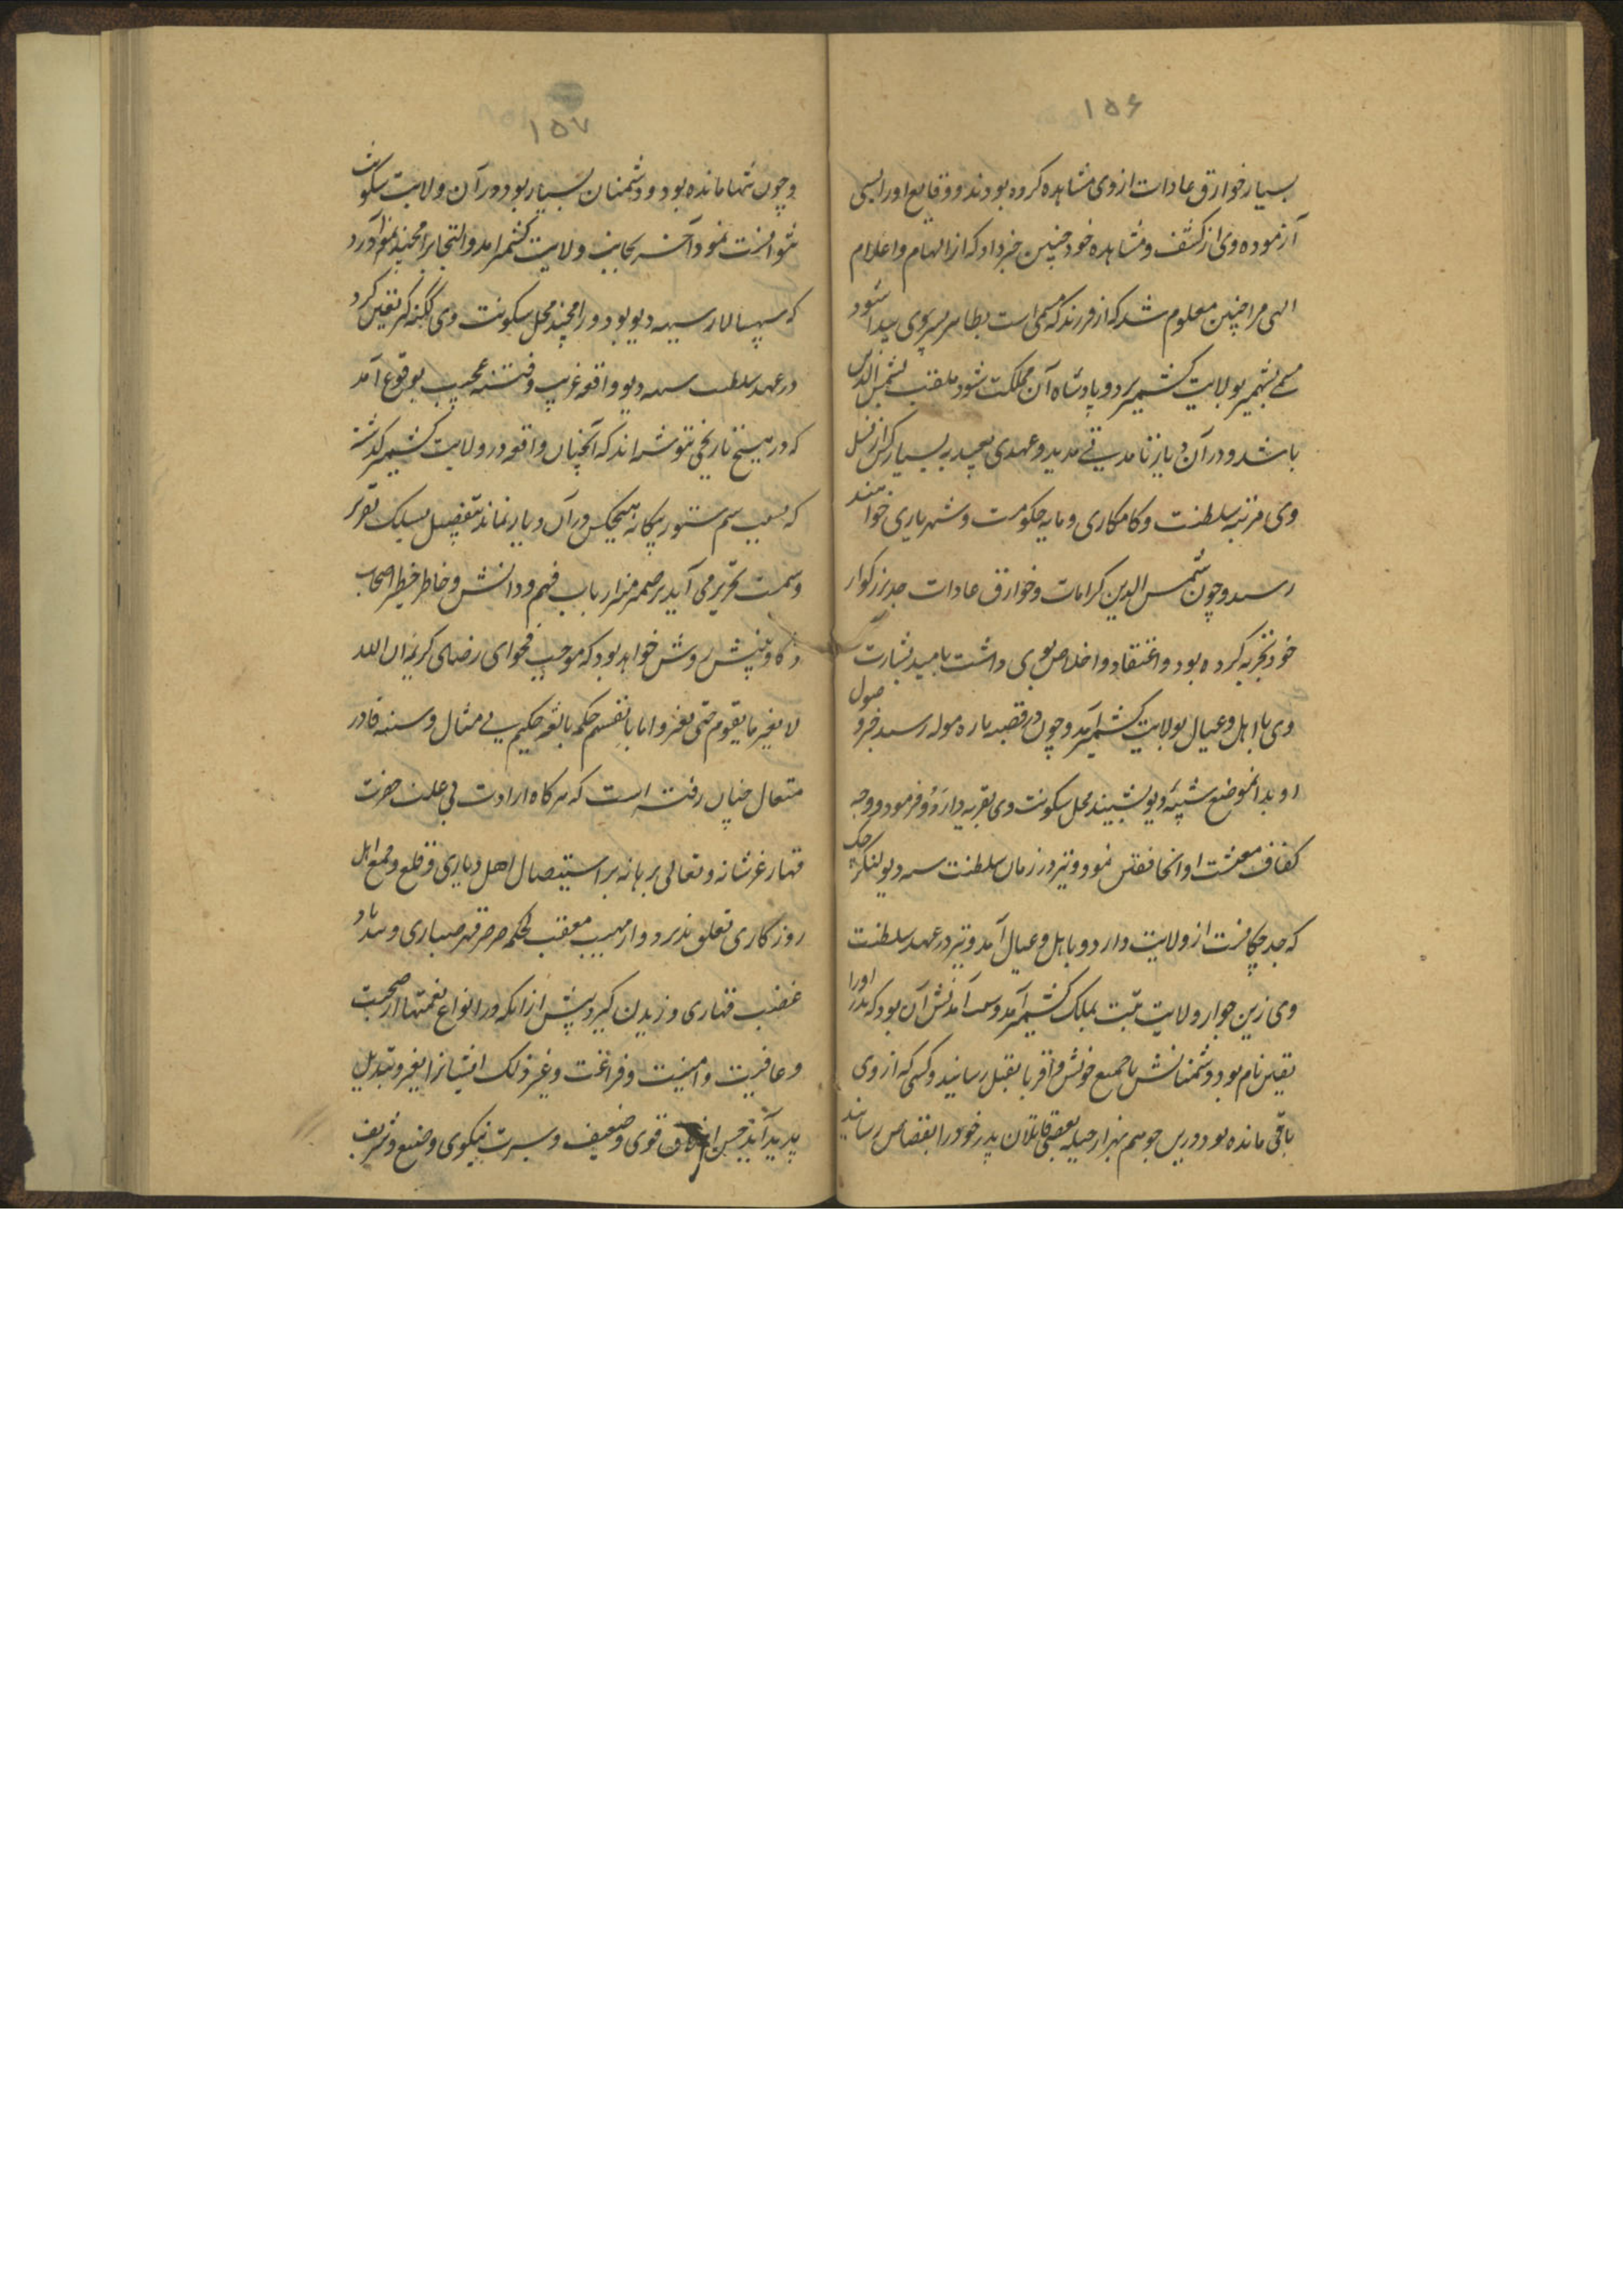 ۱۵۶
بسیار خوارق عادات از وی مشاهده کرده بودند و وقایع او را بسی
آزموده وی از کشف و مشاهده خود چنین خبر داد که از الهام و اعلام
الهی مرا چنین معلوم شد که از فرزند که مسمی است بطاهر پسری پیدا شود
مسمی بشهمیر بولایت کشمیر رود و پادشاه آن مملکت شود ملقب بشمس الدین
باشد و در آن دیار تا مدتی مدید و عهدی بعید بسیار کس از نسل
وی مرتبه سلطنت و کامکاری و مایه حکومت و شهریاری خواهند
رسید و چون شمس الدین کرامات و خوارق عادات جد بزرکوار
خود تجربه کرده بود و اعتقاد و اخلاص بوی داشت بامید بشارت
وی با اهل و عیال بولایت کشمیر آمد و چون در قصبه باره موله رسید
او بدانموضع محل سکونت وی بقریه فرمود و وجه
کفاف معیشت او آنجا تعیین نمود و نیز در زمان سلطنت سهه دیو لنکر چک
که جد چکانست از ولایت دارد و با اهل و عیال آمد و نیز در عهد سلطنت
وی رین جو از ولایت تبت بملک کشمیر آمد و سبب آمدنش آن بود که پدر او را
نام بود دشمنانش با جمیع خویش و اقربا بقتل رسانید و کسی که از وی
باقی مانده بود و رین جو هم بهزار حیله بعضی قاتلان پدر خود را بقصاص رسانید
۱۵۷
و چون تنها مانده بود و دشمنان بسیار بود در آن ولایت سکونت
نتوانست نمود آخر بجانب ولایت کشمیر آمد و التجا برامچند نمود آورد
که سپهسالار سهه دیو بود و رامچند محل سکونت وی تعیین کرد
در عهد سلطنت سهه دیو واقعه غریب و فتنه عجیب بوقوع آمد
که در هیچ تاریخی ننوشته اند که آنچنان واقعه در ولایت کشمیر گذشته
که بسبب سم ستور بیکانه هیچکس در آن دیار نماند بتفصیل بسلک تقریر
و سمت تحریر می آید بر ضمیر ارباب فهم و دانش و خاطر خطیر اصحاب
ذکا و بینش روشن خواهد بود که بموجب فحوای کریمه ان الله
لا یغیر ما بقوم حتی یغیروا ما بانفسهم حکمه بالغه حکیم بی مثال و سنه قادر
متعال چنان رفته است که هر کاه ارادت بی علت حضرت
قهار عز شانه و تعالی برهانه بر استیصال اهل دیاری و قلع و قمع اهل
روزکاری تعلق پذیرد و از مهب لا معقب لحکمه صرصر قهر جباری و تندباد
غضب قهاری وزیدن کیرد پیش از آنکه در انواع نعمتها از صحبت
و عافیت و امنیت و فراغت و غیر ذلک ایشانرا تغیر و تبدیل
پدید آید حسن اخلاق قوی و ضعیف و سیرت نیکوی وضیع و شریف